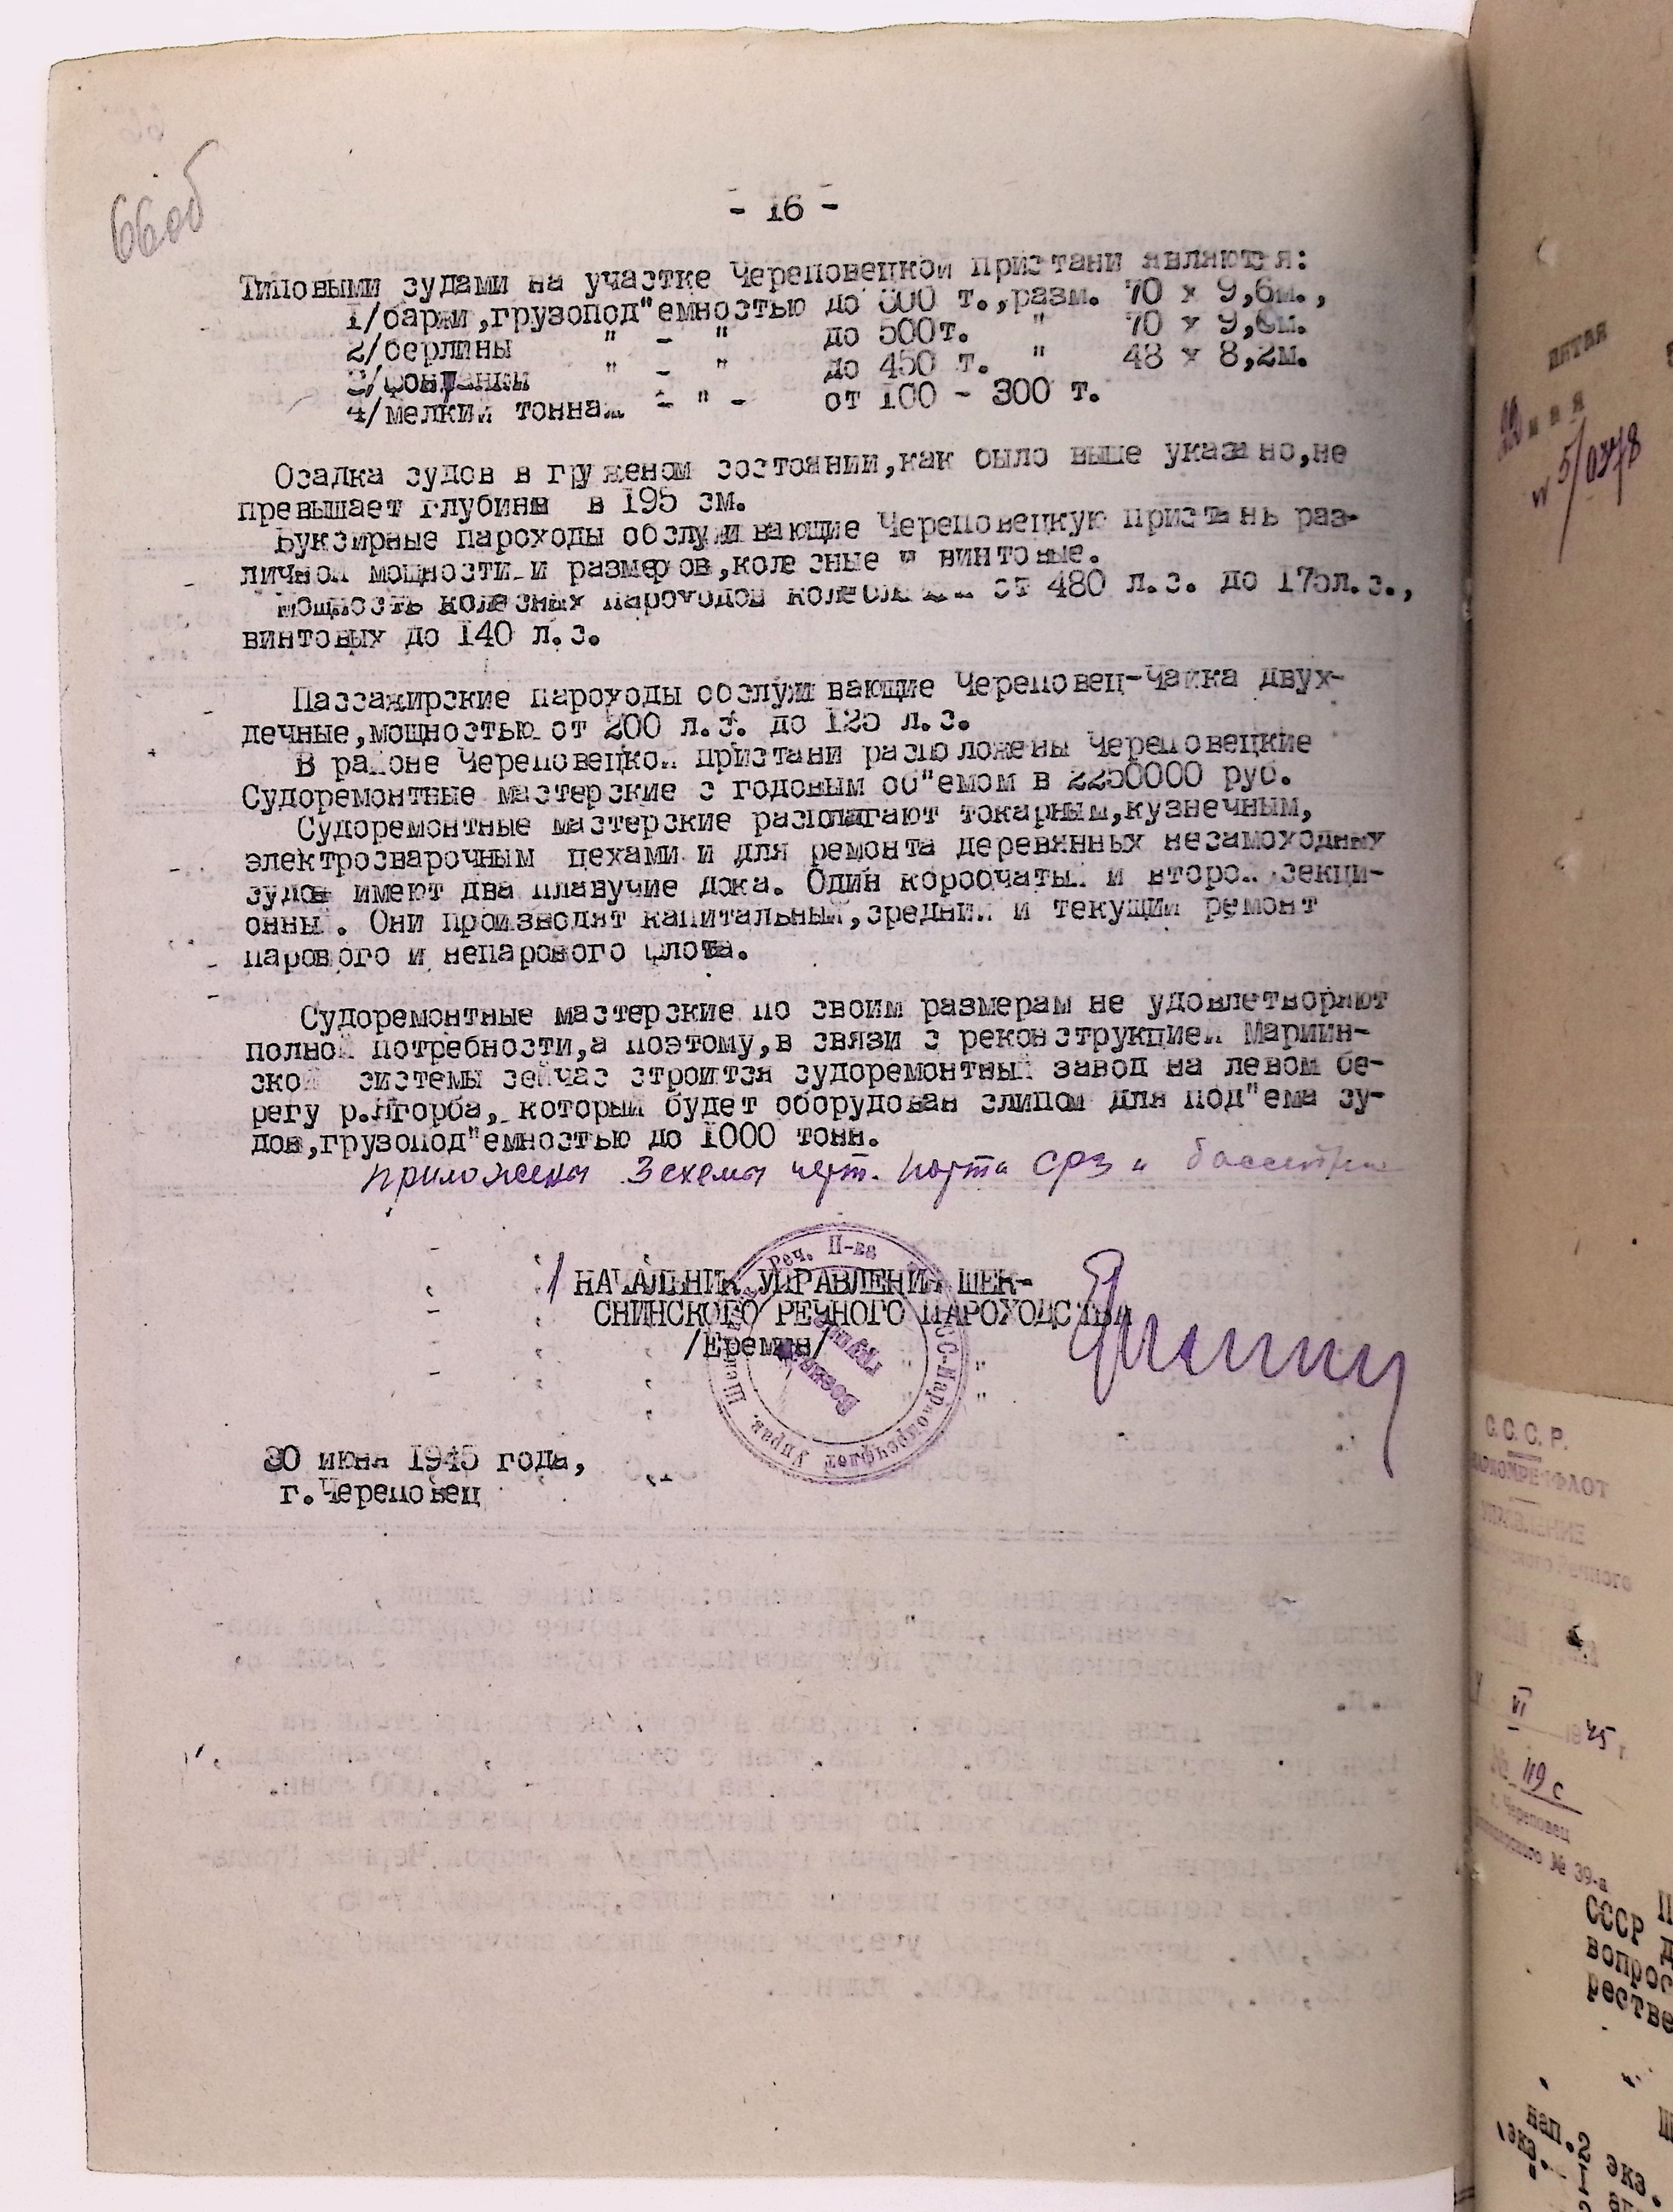 66об
- 16 -
Типовыми судами на участке Череповецкой пристани являются:
1/баржи,грузопод"емностью до 600 т.,разм. 70 х 9,6м.,
2/берлины " - " до 500т. " 70 х 9,6м.
3/фонтанки " - " до 450 т. " 48 х 8,2м.
4/мелкий тоннаж - " - от 100 - 300 т.
Осадка судов в груженом состоянии,как было выше указано,не
превышает глубины в 195 см.
Буксирные пароходы обслуживающие Череповецкую пристань раз-
личной мощности и размеров,колесные и винтовые.
Мощность колесных пароходов колеблется от 480 л.с. до 175л.с.,
винтовых до 140 л.с.
Пассажирские пароходы обслуживающие Череповец-Чайка двух-
дечные,мощностью от 200 л.с. до 125 л.с.
В районе Череповецкой пристани расположены Череповецкие
Судоремонтные мастерские с годовым об"емом в 2250000 руб.
Судоремонтные мастерские располагают токарным,кузнечным,
электросварочным цехами и для ремонта деревянных несамоходных
судов имеют два плавучие дока. Один коробчатый и второй секци-
онный. Они производят капитальный,средний и текущий ремонт
парового и непарового флота.
Судоремонтные мастерские по своим размерам не удовлетворяют
полной потребности,а поэтому,в связи с реконструкцией Мариин-
ской системы сейчас строится судоремонтный завод на левом бе-
регу р.Ягорба, который будет оборудован слипом для под"ема су-
дов,грузопод"емностью до 1000 тонн.
Приложены 3 схемы черт. порта СРЗ и
НАЧАЛЬНИК УПРАВЛЕНИЯ ШЕК-
СНИНСКОГО РЕЧНОГО ПАРОХОДСТВА
/Еремин/
30 июня 1945 года,
г.Череповец
пятая
5/0378
С.С.С.Р.
НАРКОМРЕЧФЛОТ
УПРАВЛЕНИЕ
Речного
VI 1945 г.
№ 119 с
г. Череповец
№ 39-а
СССР
вопрос
нап.2 экз.